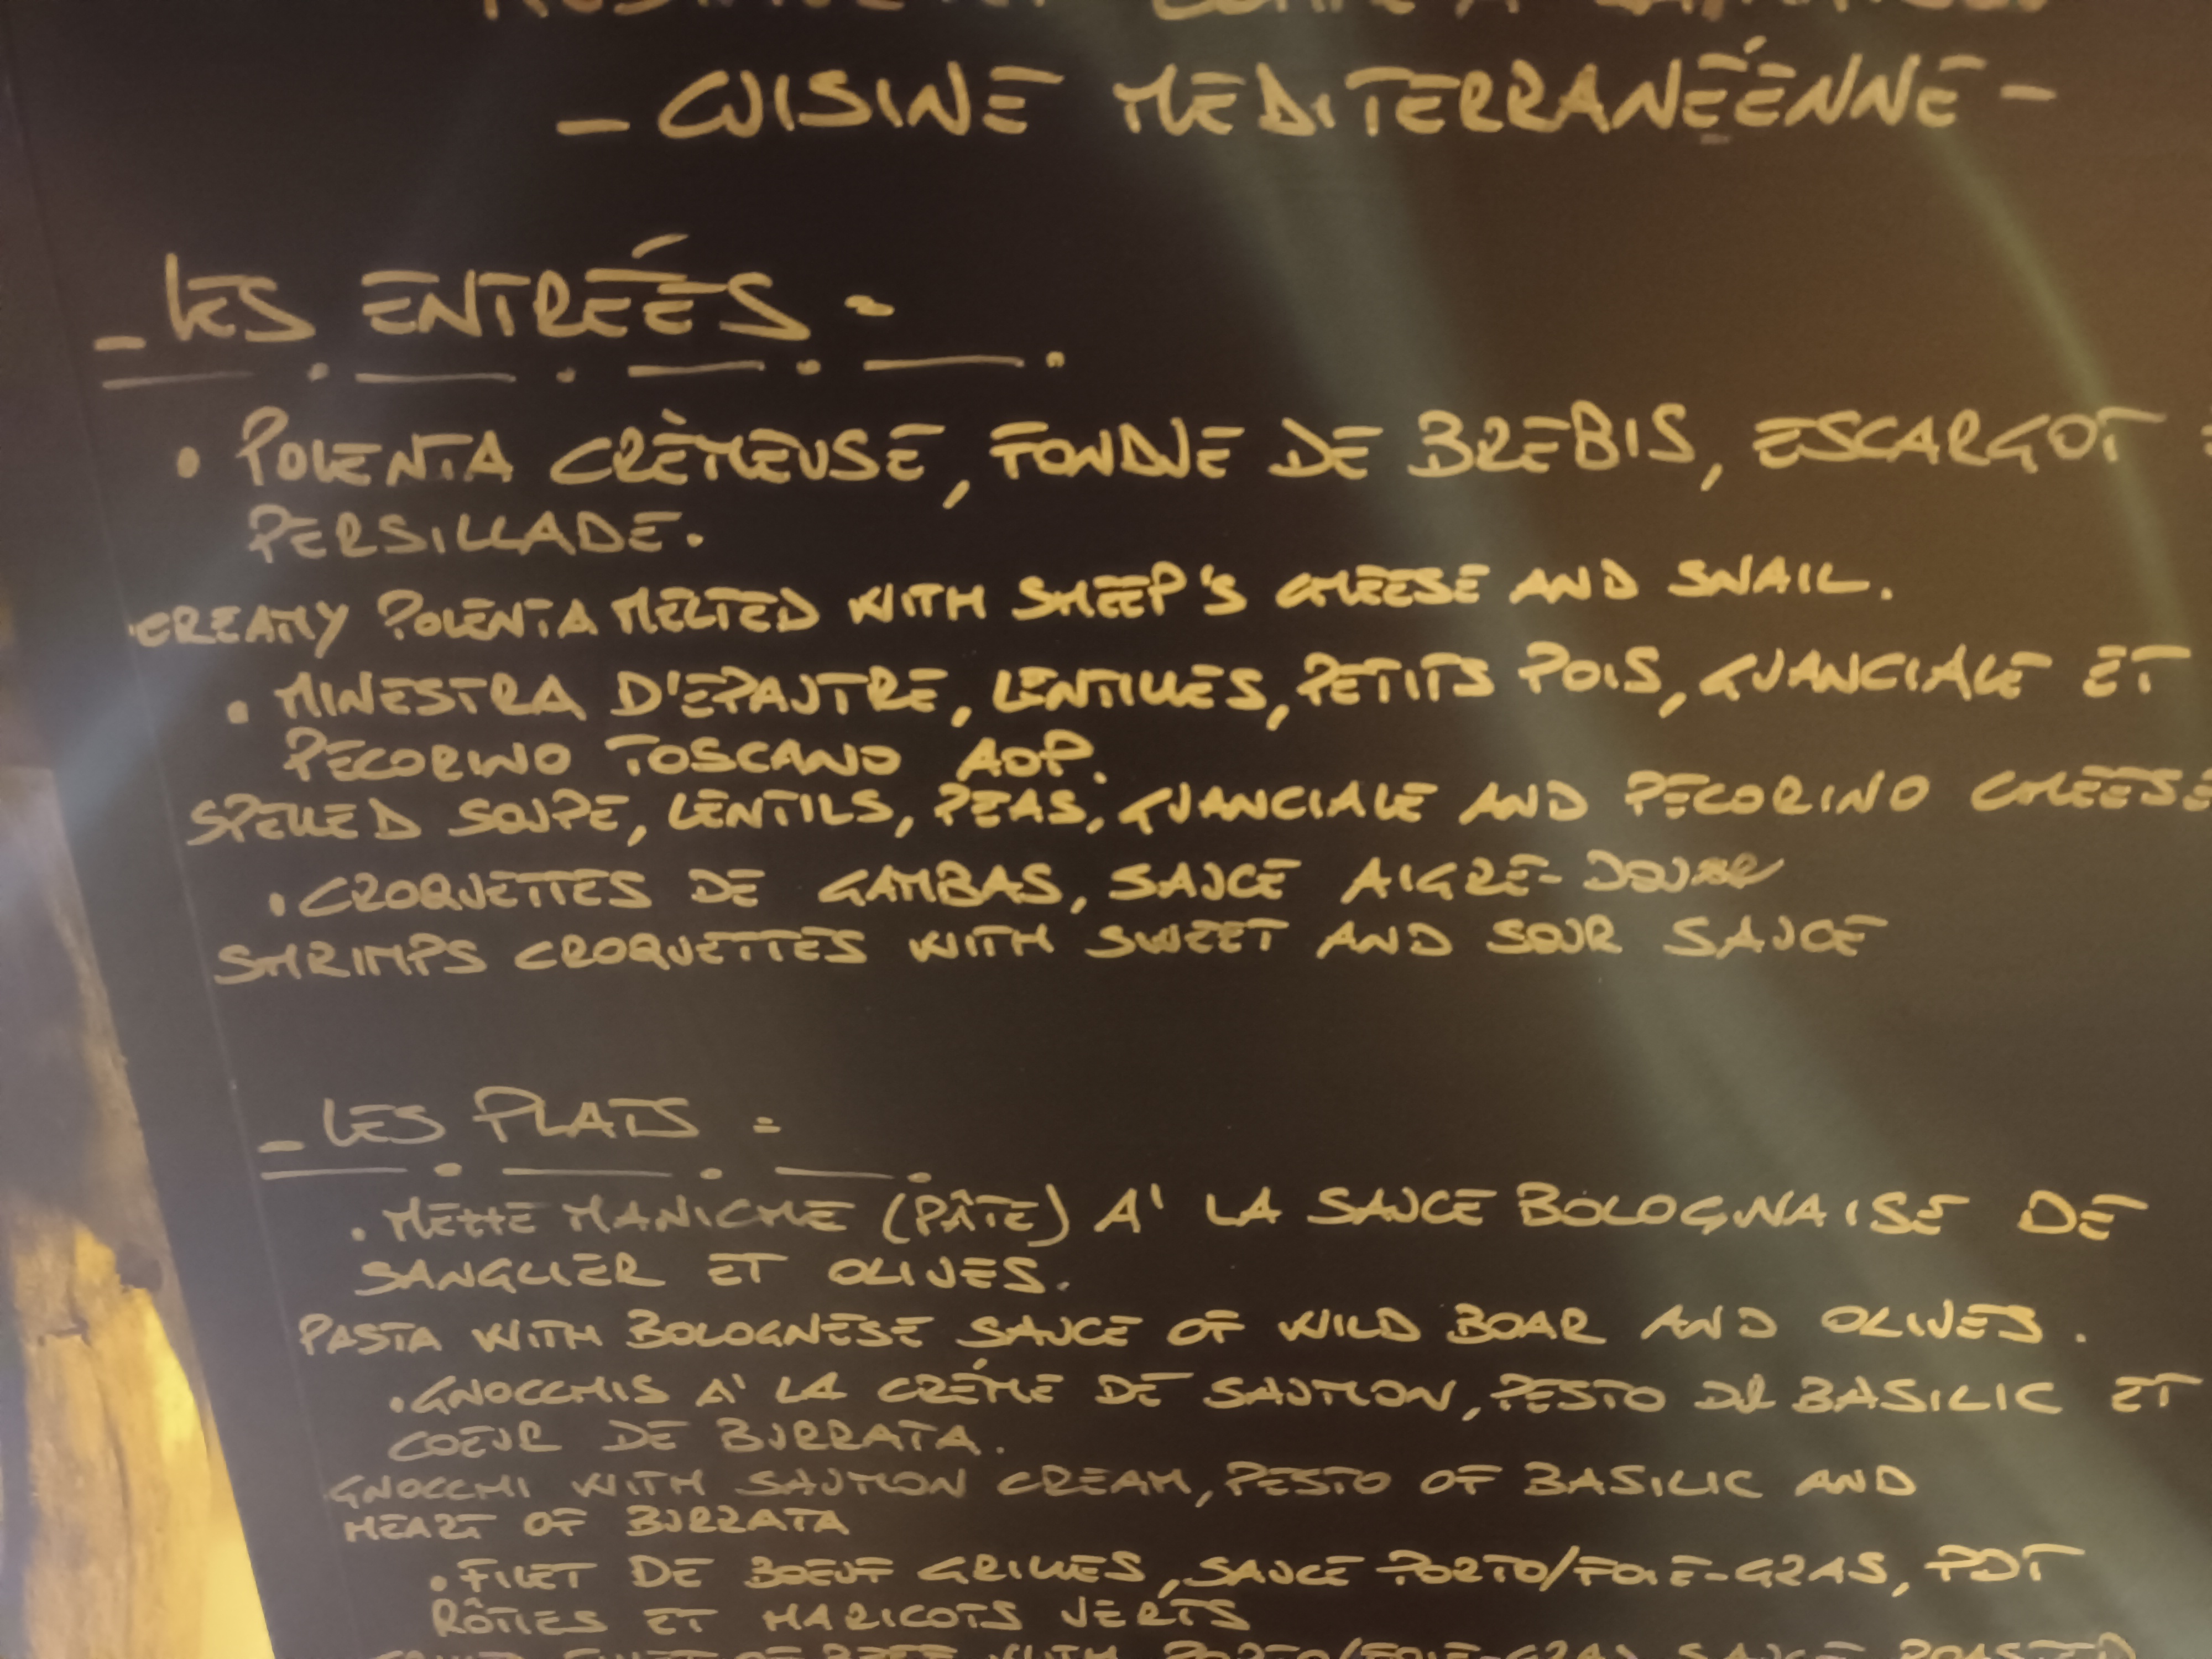 - CUISINE MEDITERRANÉENNE -
- LES ENTRÉES =
• POLENTA CRÈMEUSE, FONDUE DE BREBIS, ESCARGOT
PERSILLADE.
CREAMY POLENTA MELTED WITH SHEEP'S CHEESE AND SNAIL.
• MINESTRA D'EPAUTRE, LENTILLES, PETITS POIS, GUANCIALE ET
PECORINO TOSCANO AOP.
SPELLED SOUPE, LENTILS, PEAS, GUANCIALE AND PECORINO CHEESE
• CROQUETTES DE GAMBAS, SAUCE AIGRE-
SHRIMPS CROQUETTES WITH SWEET AND SOUR SAUCE
- LES PLATS =
• MANICHE (PÂTE) A' LA SAUCE BOLOGNAISE DE
SANGLIER ET OLIVES.
PASTA WITH BOLOGNESE SAUCE OF WILD BOAR AND OLIVES.
• GNOCCHIS A' LA CRÉME DE SAUMON, PESTO DE BASILIC ET
COEUR DE BURRATA.
GNOCCHI WITH SAUMON CREAM, PESTO OF BASILIC AND
HEART OF BURRATA
• FILET DE BOEUF GRILLES, SAUCE PORTO/FOIE-GRAS, PDT
RÔTIES ET HARICOTS VERTS
BEEF WITH PORTO/FOIE-GRAS SAUCE ROASTED